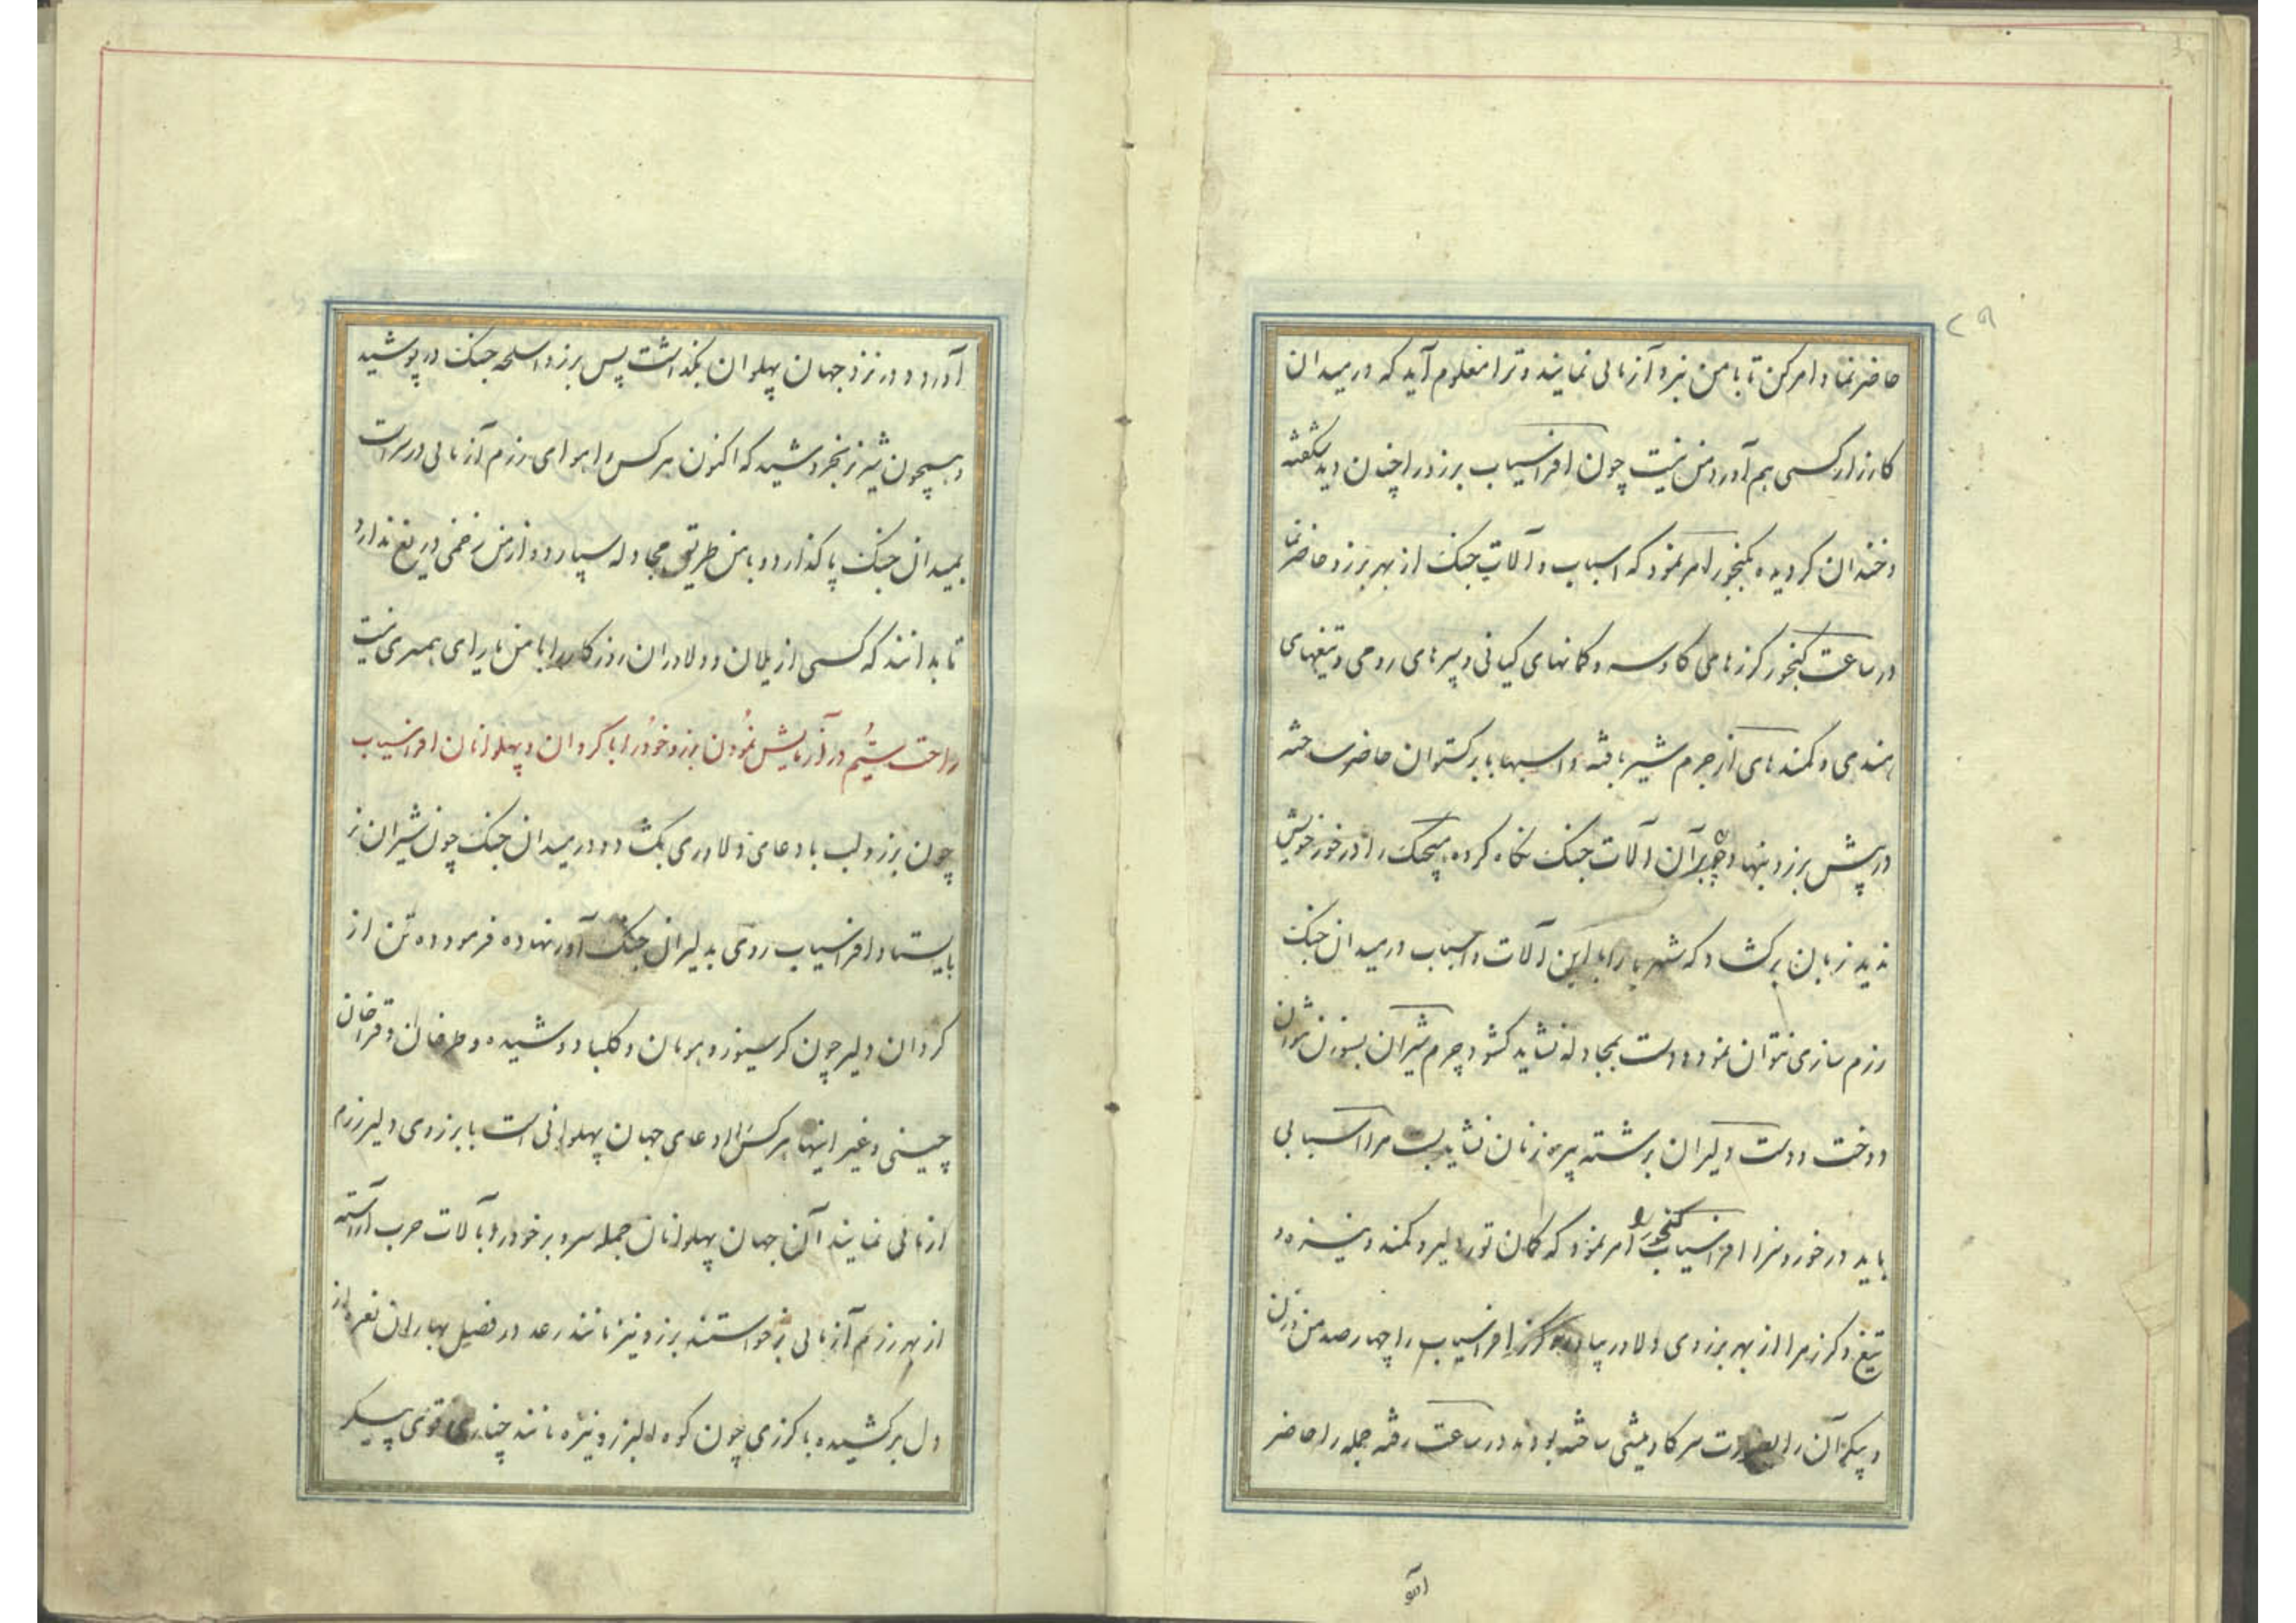 حاضر نما و امر کن تا با من نبرد آزمائی نمایند و ترا معلوم آید که در میدان
کارزار کسی هم آورد من نیست چون افراسیاب برزو را چنان دید شگفته
و خندان کردیده بکنجور امر نمود که اسباب و آلات جنک از بهر برزو حاضر نما
در ساعت کنجور کرزهای کاوسه و کمانهای کیانی و سپرهای رومی و تیغهای
هندی و کمندهای از چرم شیر بافته و اسبها با برکستوان حاضر ساخته
در پیش برزو بنهاد چون بر آن آلات جنک نکاه کرده هیچیک را در خور خویش
ندید زبان برکشاد که شهریارا با این آلات و اسباب در میدان جنک
رزم سازی نتوان نمود و دست بمجادله نشاید کشود چرم شیران بسوزن نتوان
دوخت و دست دلیران برشته پیره زنان نشاید بست مرا اسبابی
باید در خور و سزا افراسیاب کنجور را امر نمود که کمان تور دلیر و کمند و نیزه و
تیغ و کرز مرا از بهر برزوی دلاور بیاورد کرز افراسیاب را چهار صد من وزن
و پیکر آن را بصورت سر کاومیشی ساخته بودند در ساعت رفته جمله را حاضر
آورد و در نزد جهان پهلوان بگذاشت پس برزو اسلحه جنک در پوشید
و همچون شیر نر بخروشید که اکنون هر کس را هوای رزم آزمائی در سر است
بمیدان جنک پا کذارد و با من طریق مجادله سپارد و از من زخمی دریغ ندارد
تا بدانند که کسی از یلان و دلاوران روزکار را با من یارای همسری نیست
در آزمایش نمودن برزو خود را با کردان و پهلوانان افراسیاب
چون برزو لب بادعای دلاوری بکشاد و در میدان جنک چون شیران نر
بایستاد افراسیاب روی بدلیران جنک آور نهاده فرمود ده تن از
کردان دلیر چون کرسیوز و هومان و کلباد و شیده و طرخان و قراخان
چینی و غیر اینها هر کس را ادعای جهان پهلوانی است با برزوی دلیر رزم
ازمائی نمایند آن جهان پهلوانان جمله سر و بر خود را بآلات حرب آراسته
از بهر رزم آزمائی برخواستند برزو نیز مانند رعد در فصل بهاران نعره از
دل برکشیده با کرزی چون کوه البرز و نیزه مانند چناری قوی پیکر